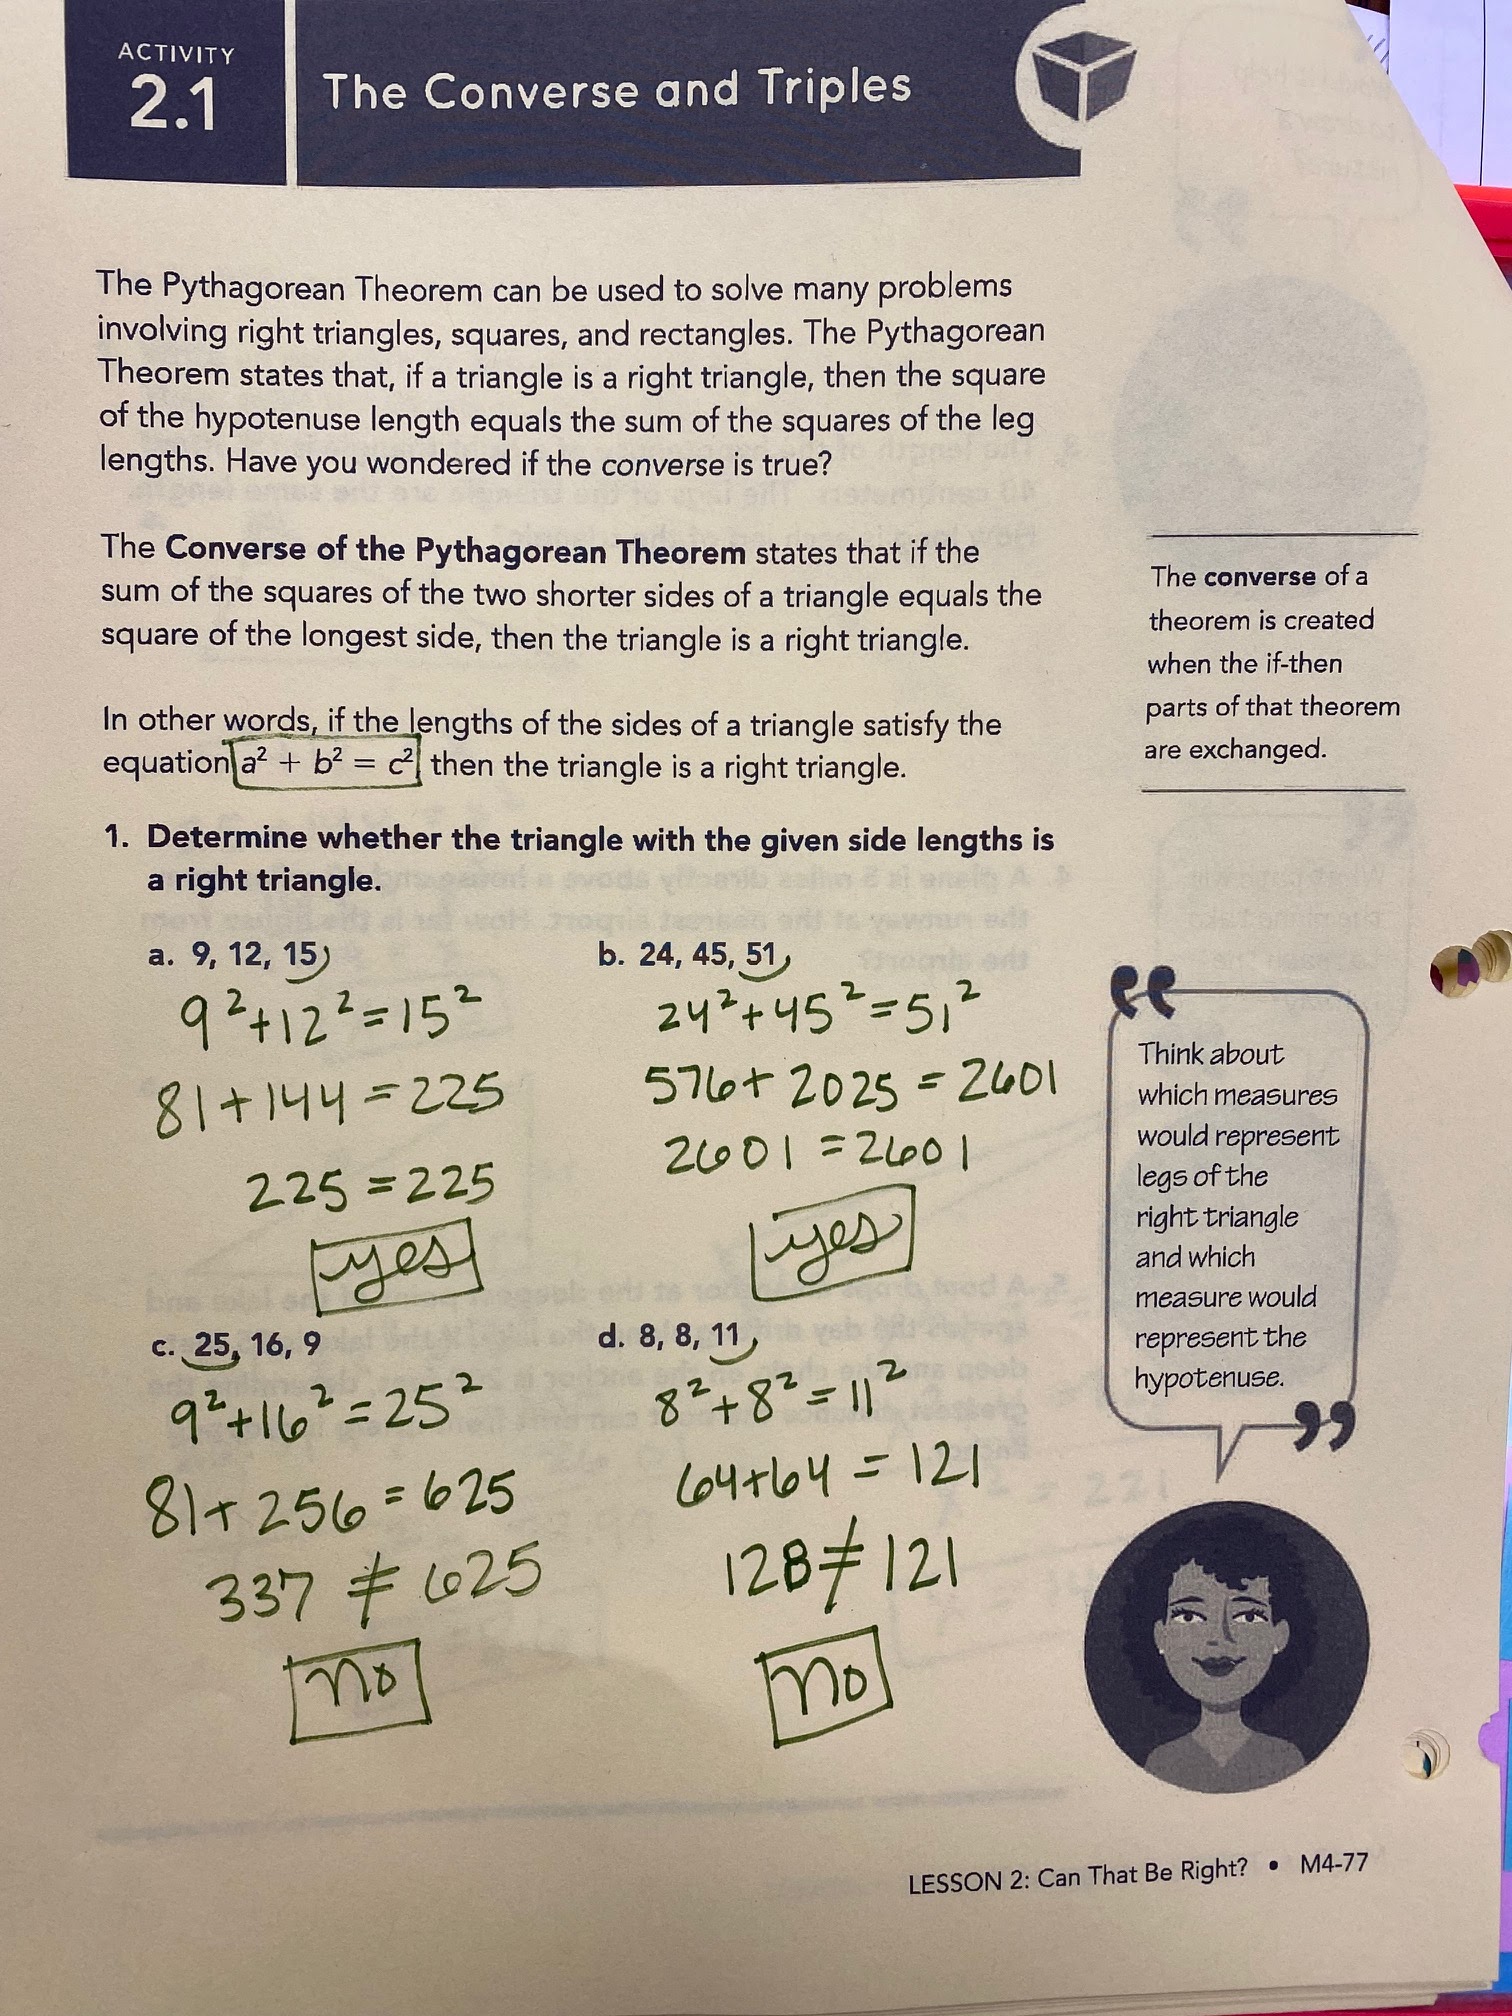 ACTIVITY
2.1
The Converse and Triples
The Pythagorean Theorem can be used to solve many problems
involving right triangles, squares, and rectangles. The Pythagorean
Theorem states that, if a triangle is a right triangle, then the square
of the hypotenuse length equals the sum of the squares of the leg
lengths. Have you wondered if the converse is true?
The Converse of the Pythagorean Theorem states that if the
sum of the squares of the two shorter sides of a triangle equals the
square of the longest side, then the triangle is a right triangle.
The converse of a
theorem is created
when the if-then
parts of that theorem
are exchanged.
In other words, if the lengths of the sides of a triangle satisfy the
equation a² + b² = c², then the triangle is a right triangle.
1. Determine whether the triangle with the given side lengths is
a right triangle.
a. 9, 12, 15
9² + 12² = 15²
81 + 144 = 225
225 = 225
yes
b. 24, 45, 51
24² + 45² = 51²
576 + 2025 = 2601
2601 = 2601
yes
c. 25, 16, 9
9² + 16² = 25²
81 + 256 = 625
337 ≠ 625
no
d. 8, 8, 11
8² + 8² = 11²
64 + 64 = 121
128 ≠ 121
no
Think about
which measures
would represent
legs of the
right triangle
and which
measure would
represent the
hypotenuse.
LESSON 2: Can That Be Right? • M4-77